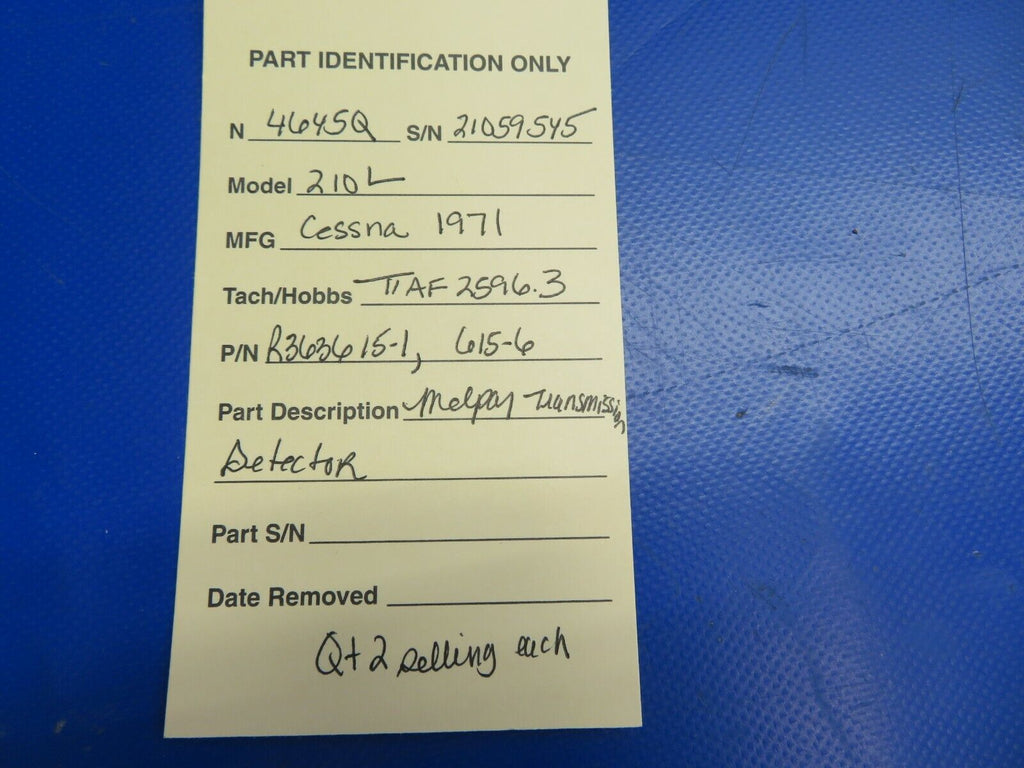 PART IDENTIFICATION ONLY
N 4645Q S/N 21059545
Model 210L
MFG Cessna 1971
Tach/Hobbs TTAF 2596.3
P/N R363615-1, 615-6
Part Description Melpar Transmission
Detector
Part S/N
Date Removed
Qt 2 selling each